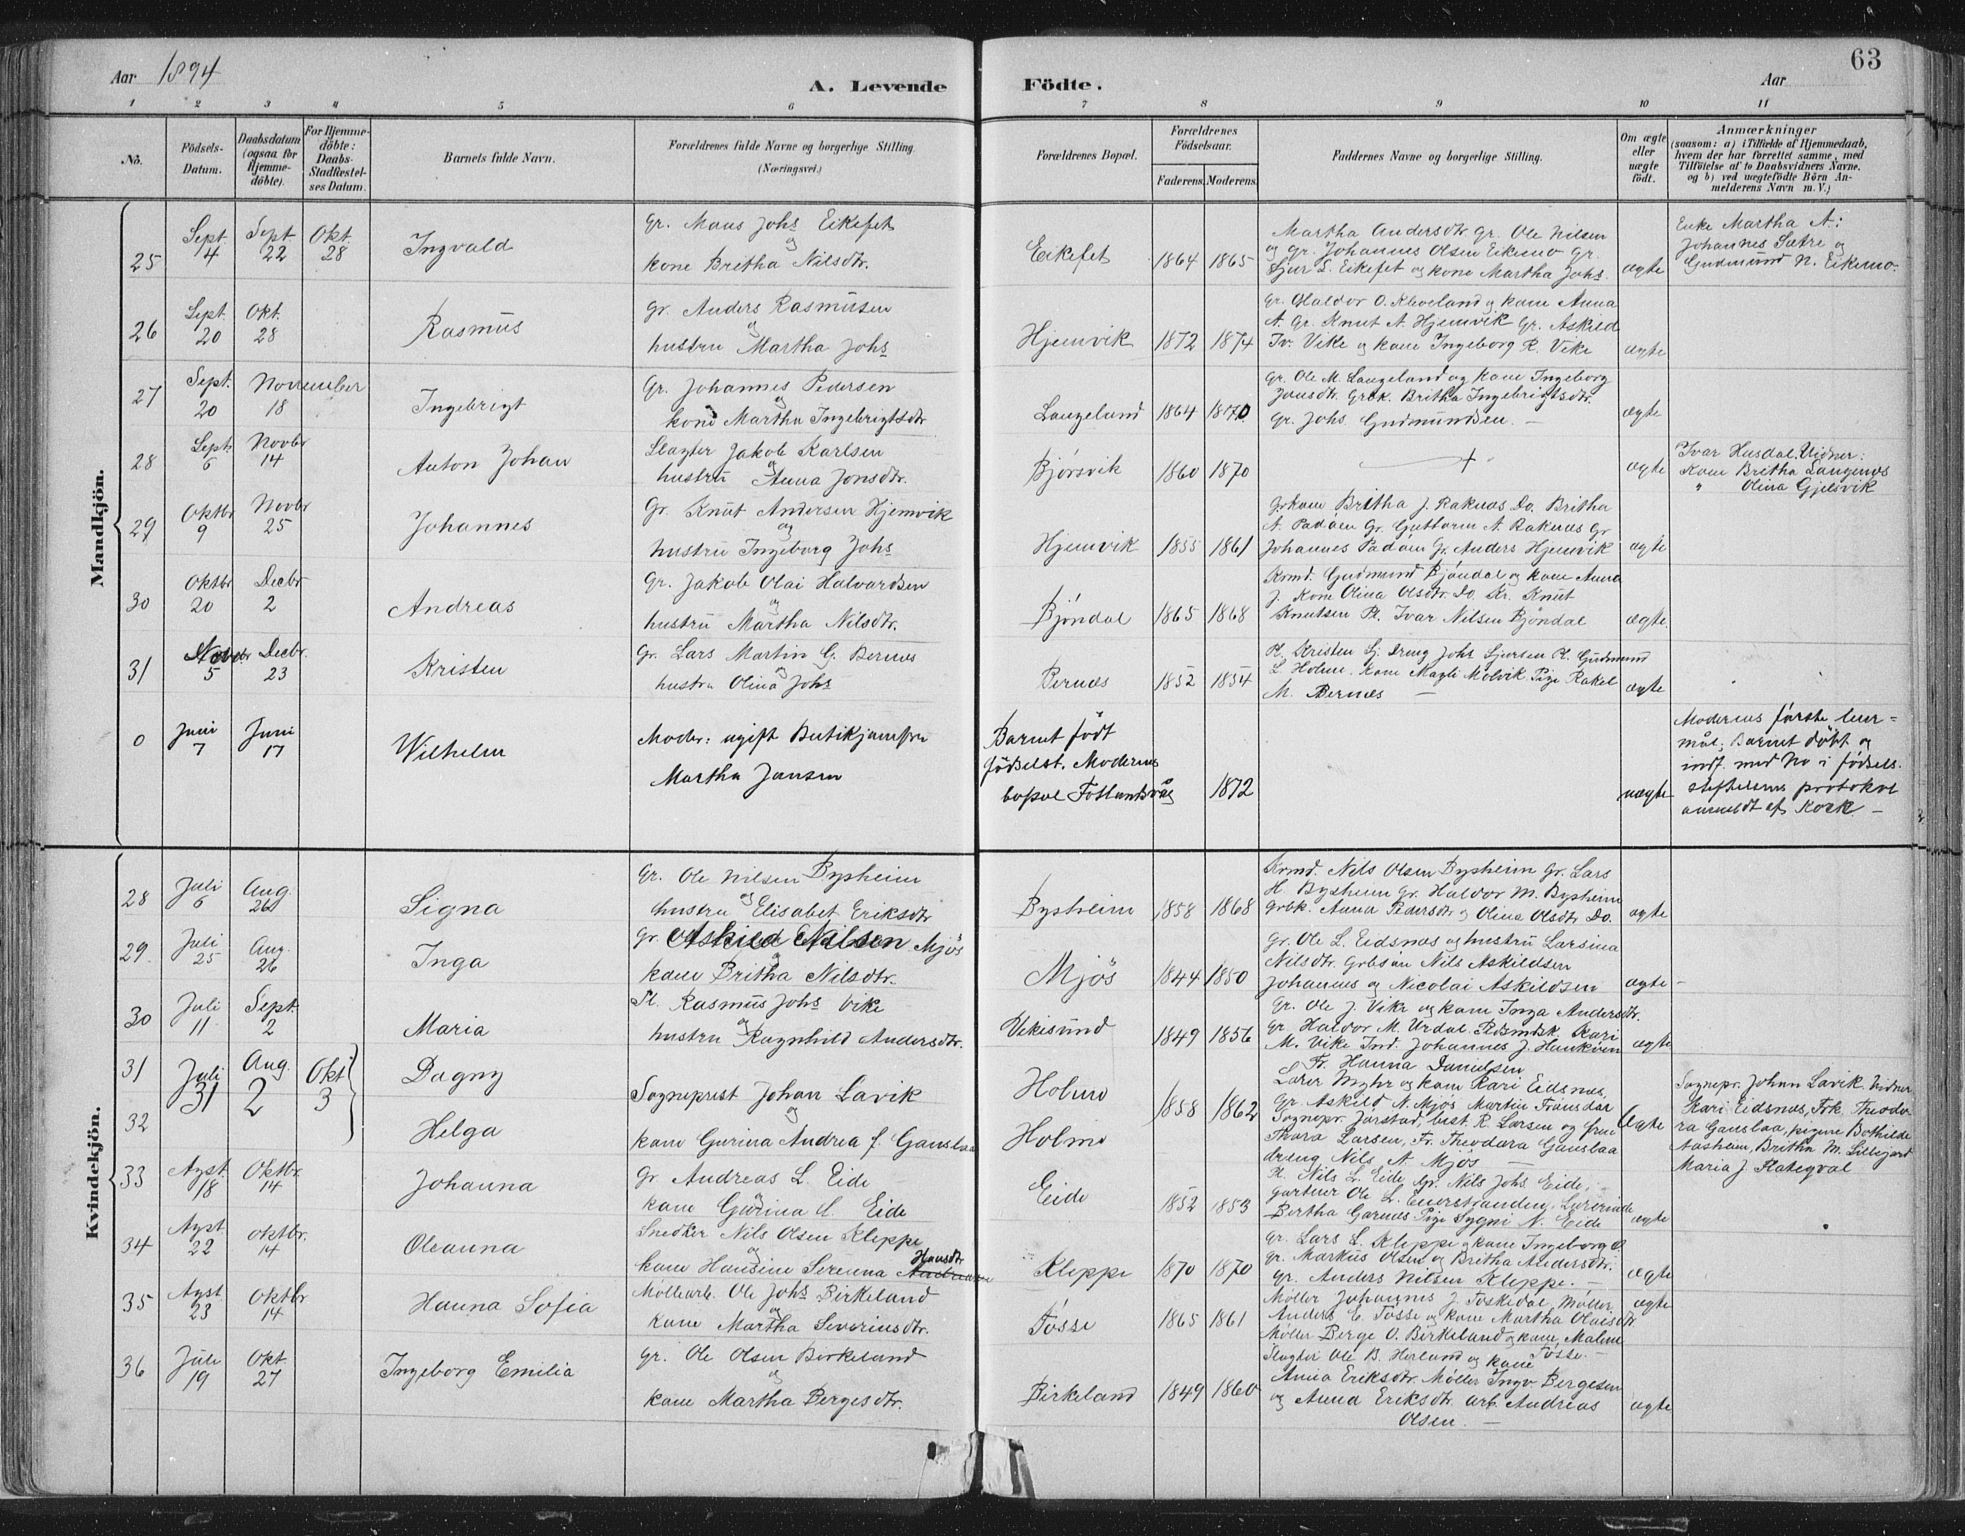 63
Aar 1894
A. Levende
Födte.
Aar
1 2 3 4 5 6 7 8 9 10 11
No.
Födsels-
Datum.
Daabsdatum
(ogsaa for
Hjemme-
döbte).
For Hjemme-
döbte:
Daabs-
Stadfæstel-
ses Datum.
Barnets fulde Navn.
Forældrenes fulde Navne og borgerlige Stilling
(Næringsvei.)
Forældrenes Bopæl.
Forældrenes
Födselsaar.
Faderens. Moderens.
Faddernes Navne og borgerlige Stilling.
Om ægte
eller
uægte
födt.
Anmærkninger
(saasom: a) i Tilfælde af Hjemmedaab,
hvem der har forrettet samme, med
Tilföielse af to Daabsvidners Navne,
og b) ved uægtefödte Börn An-
melderens Navn m. V.)
Mandkjön.
25 Sept. 4 Sept. 22 Okt. 28 Ingvald
Gr. Mons Johs Eikefet
og
kone Britha Nilsdtr.
Eikefet 1864 1865
Martha Andersdtr. Gr. Ole Nilsen
og Gr. Johannes Olsen Eikemo Gr.
Sjur S. Eikefet og kone Martha Johs.
ægte
Enke Martha A:
Johannes Sætre og
Gudmund N. Eikemo.
26 Sept. 20 Okt. 28 Rasmus
Gr. Anders Rasmusen
og
hustru Martha Johs
Hjemvik 1872 1874
Gr. Haldor O. Kleveland og kone Anna
A. Gr. Knut A. Hjemvik Gr. Askild
Iv. Vike og kone Ingeborg R. Vike
ægte
27 Sept. 20 November 18 Ingebrigt
Gr. Johannes Pedersen
og
kone Martha Ingebrigtsdtr
Langeland 1864 1870
Gr. Ole M. Langeland og kone Ingeborg
Jonsdtr. Grbk. Britha Ingebrigtsdtr.
Gr. Johs Gudmundsen. —
ægte
28 Sept. 6 Novbr 14 Anton Johan
Slagter Jakob Karlsen
og
hustru Anna Jonsdtr.
Bjørsvik 1860 1870
ægte
Ivar Husdal. Vidner:
Kone Britha Langenes
" Olina Gjelsvik
29 Oktbr 9 Novbr 25 Johannes
Gr. Knut Andersen Hjemvik
og
hustru Ingeborg Johs
Hjemvik 1855 1861
Grkone Britha J. Raknes Do. Britha
A. Padöen Gr. Guttorm A. Raknes Gr
Johannes Padöen Gr. Anders Hjemvik
ægte
30 Oktbr 20 Decbr 2 Andreas
Gr. Jakob Olai Halvardsen
og
hustru Martha Nilsdtr.
Bjöndal 1865 1868
Krmd. Gudmund Bjöndal og kone Anna
J. Kone Olina Olsdtr. Do. Kr. Knut
Knutsen Pl. Ivar Nilsen Bjöndal
ægte.
31 Novbr 5 Decbr. 23 Kristen
Gr. Lars Martin G. Bernes
og
hustru Olina Johs
Bernæs 1852 1854
Pl. Kristen Sj. Dreng Johs Sjursen Pl. Gudmund
L Holme. Kone Magli Molvik. Pige Rakel
M. Bernæs —
ægte
0 Juni 7 Juni 17 Wilhelm
Moder: ugift Butikjomfru
Martha Jansen
Barnet født
Födselst. Modernes
bopæl Fotlandsvåg
1872
uægte
Modernes förste leier-
mål; Barnet döbt og
indf. med No i födsels-
stiftelsens protokol
anmeldt af Kock —
Kvindekjön.
28 Juli 6 Aug. 26 Signa
Gr. Ole Nilsen Bysheim
og
hustru Elisabet Eriksdtr
Bysheim 1858 1868
Krmd. Nils Olsen Bysheim Gr. Lars
H. Bysheim Gr. Haldor M. Bysheim
Grbk. Anna Pedersdtr og Olina Olsdtr Do.
ægte
29 Juli 25 Aug. 26 Inga
Gr. Askild Nilsen Mjös
og
kone Britha Nilsdtr.
Mjös 1844 1850
Gr. Ole L. Eidsnæs og hustru Larsina
Nilsdtr. Grbsön Nils Askildsen
Johannes og Nicolai Askildsen
ægte
30 Juli 11 Sept. 2 Maria
Pl. Rasmus Johs Vike
og
hustru Ragnhild Andersdtr.
Vikisund 1849 1856
Gr. Ole J. Vike og kone Inga Andersdtr.
Gr. Haldor M. Urdal Kari
M. Vike Ind. Johannes J.
ægte
31 Juli 31 Aug. 2 Okt 3 Dagny
32 Helga
Sogneprest Johan Lavik
og
kone Gurina Andrea f. Ganslaa
Holmo
Holmo
1858 1862
Fr. Hanna Danielsen
Lærer Myhr og kone Kari Eidsnes,
Gr. Askild N. Mjös Martin Frönsdal
Sognepr. Jörstad, best. R. Larsen og frue
Thora Larsen, Fr. Theodora Ganslaa
dreng Nils A. Mjös —
Ægte
Sognepr. Johan Lavik. Vidner
Kari Eidsnæs, Frk. Theodo-
ra Ganslaa, pigene Bothilde
Aasheim, Britha M. Lillejord
Maria J.
33 Agst. 18 Oktbr. 14 Johanna
Gr Andreas L. Eide
og
kone Gurina Eide
Eide 1852 1853
Pl. Nils L. Eide, Gr. Nils Johs Eide,
Gartner Ole L. Lærerinde
Bertha Garnes Pige Sygni N. Eide
ægte
34 Agst. 22 Oktobr. 14 Oleanna
Snedker Nils Olsen Kleppe
og
kone Hansine Serenna Hansdtr
Kleppe 1870 1870
Gr. Lars L. Kleppe og kone Ingeborg O.
Gr. Markus Olsen og Britha Andersdtr.
Gr. Anders Nilsen Kleppe. —
ægte
35 Agst. 23 Oktobr 14 Hanna Sofia
Möllearb. Ole Johs Birkeland
og
kone Martha Severinsdtr.
Tösse 1865 1861
Möller Johannes J. Toskedal, Möller
Anders E. Tösse og kone Martha Olaisdtr
Möller Berge O. Birkeland og kone Malene
Tösse. —
ægte
36 Juli 19 Okt. 27 Ingeborg Emilia
Gr. Ole Olsen Birkeland
og
kone Martha Bergesdtr.
Birkeland 1849 1860
Slagter Ole B. Herland og kone
Anna Eriksdtr. Möller Ingv. Bergesen
og Anna Eriksdtr. arb. Andreas
Olsen. —
ægte